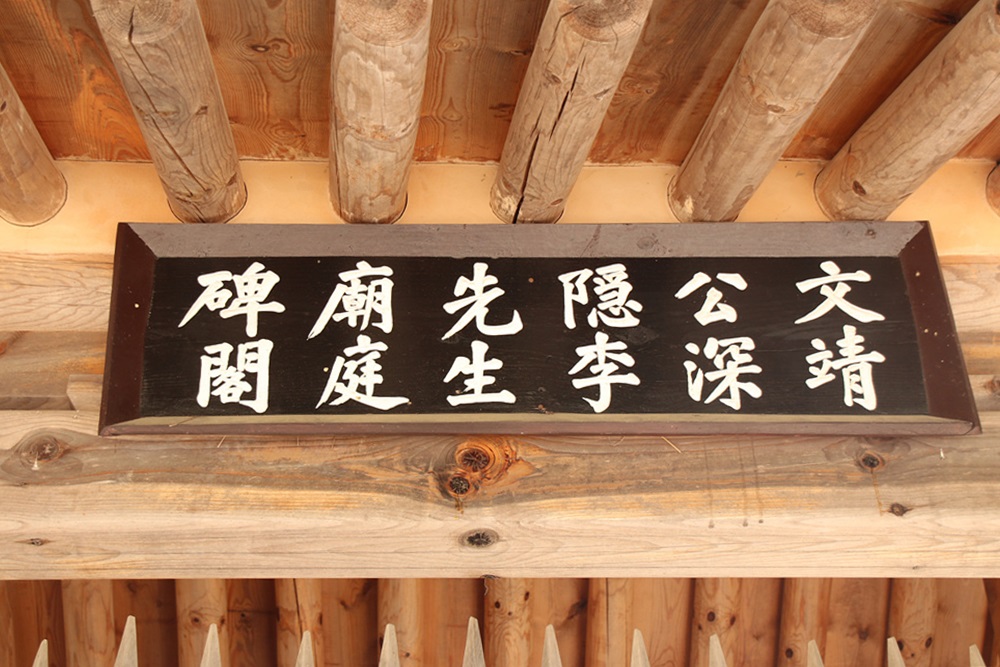 文靖
公深
隠李
先生
廟庭
碑閣